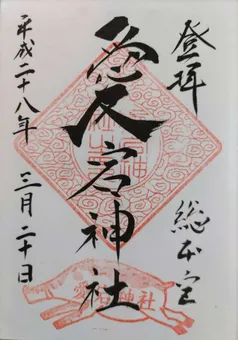 登拝
総本宮
愛宕神社
平成二十八年三月二十日
愛宕神社